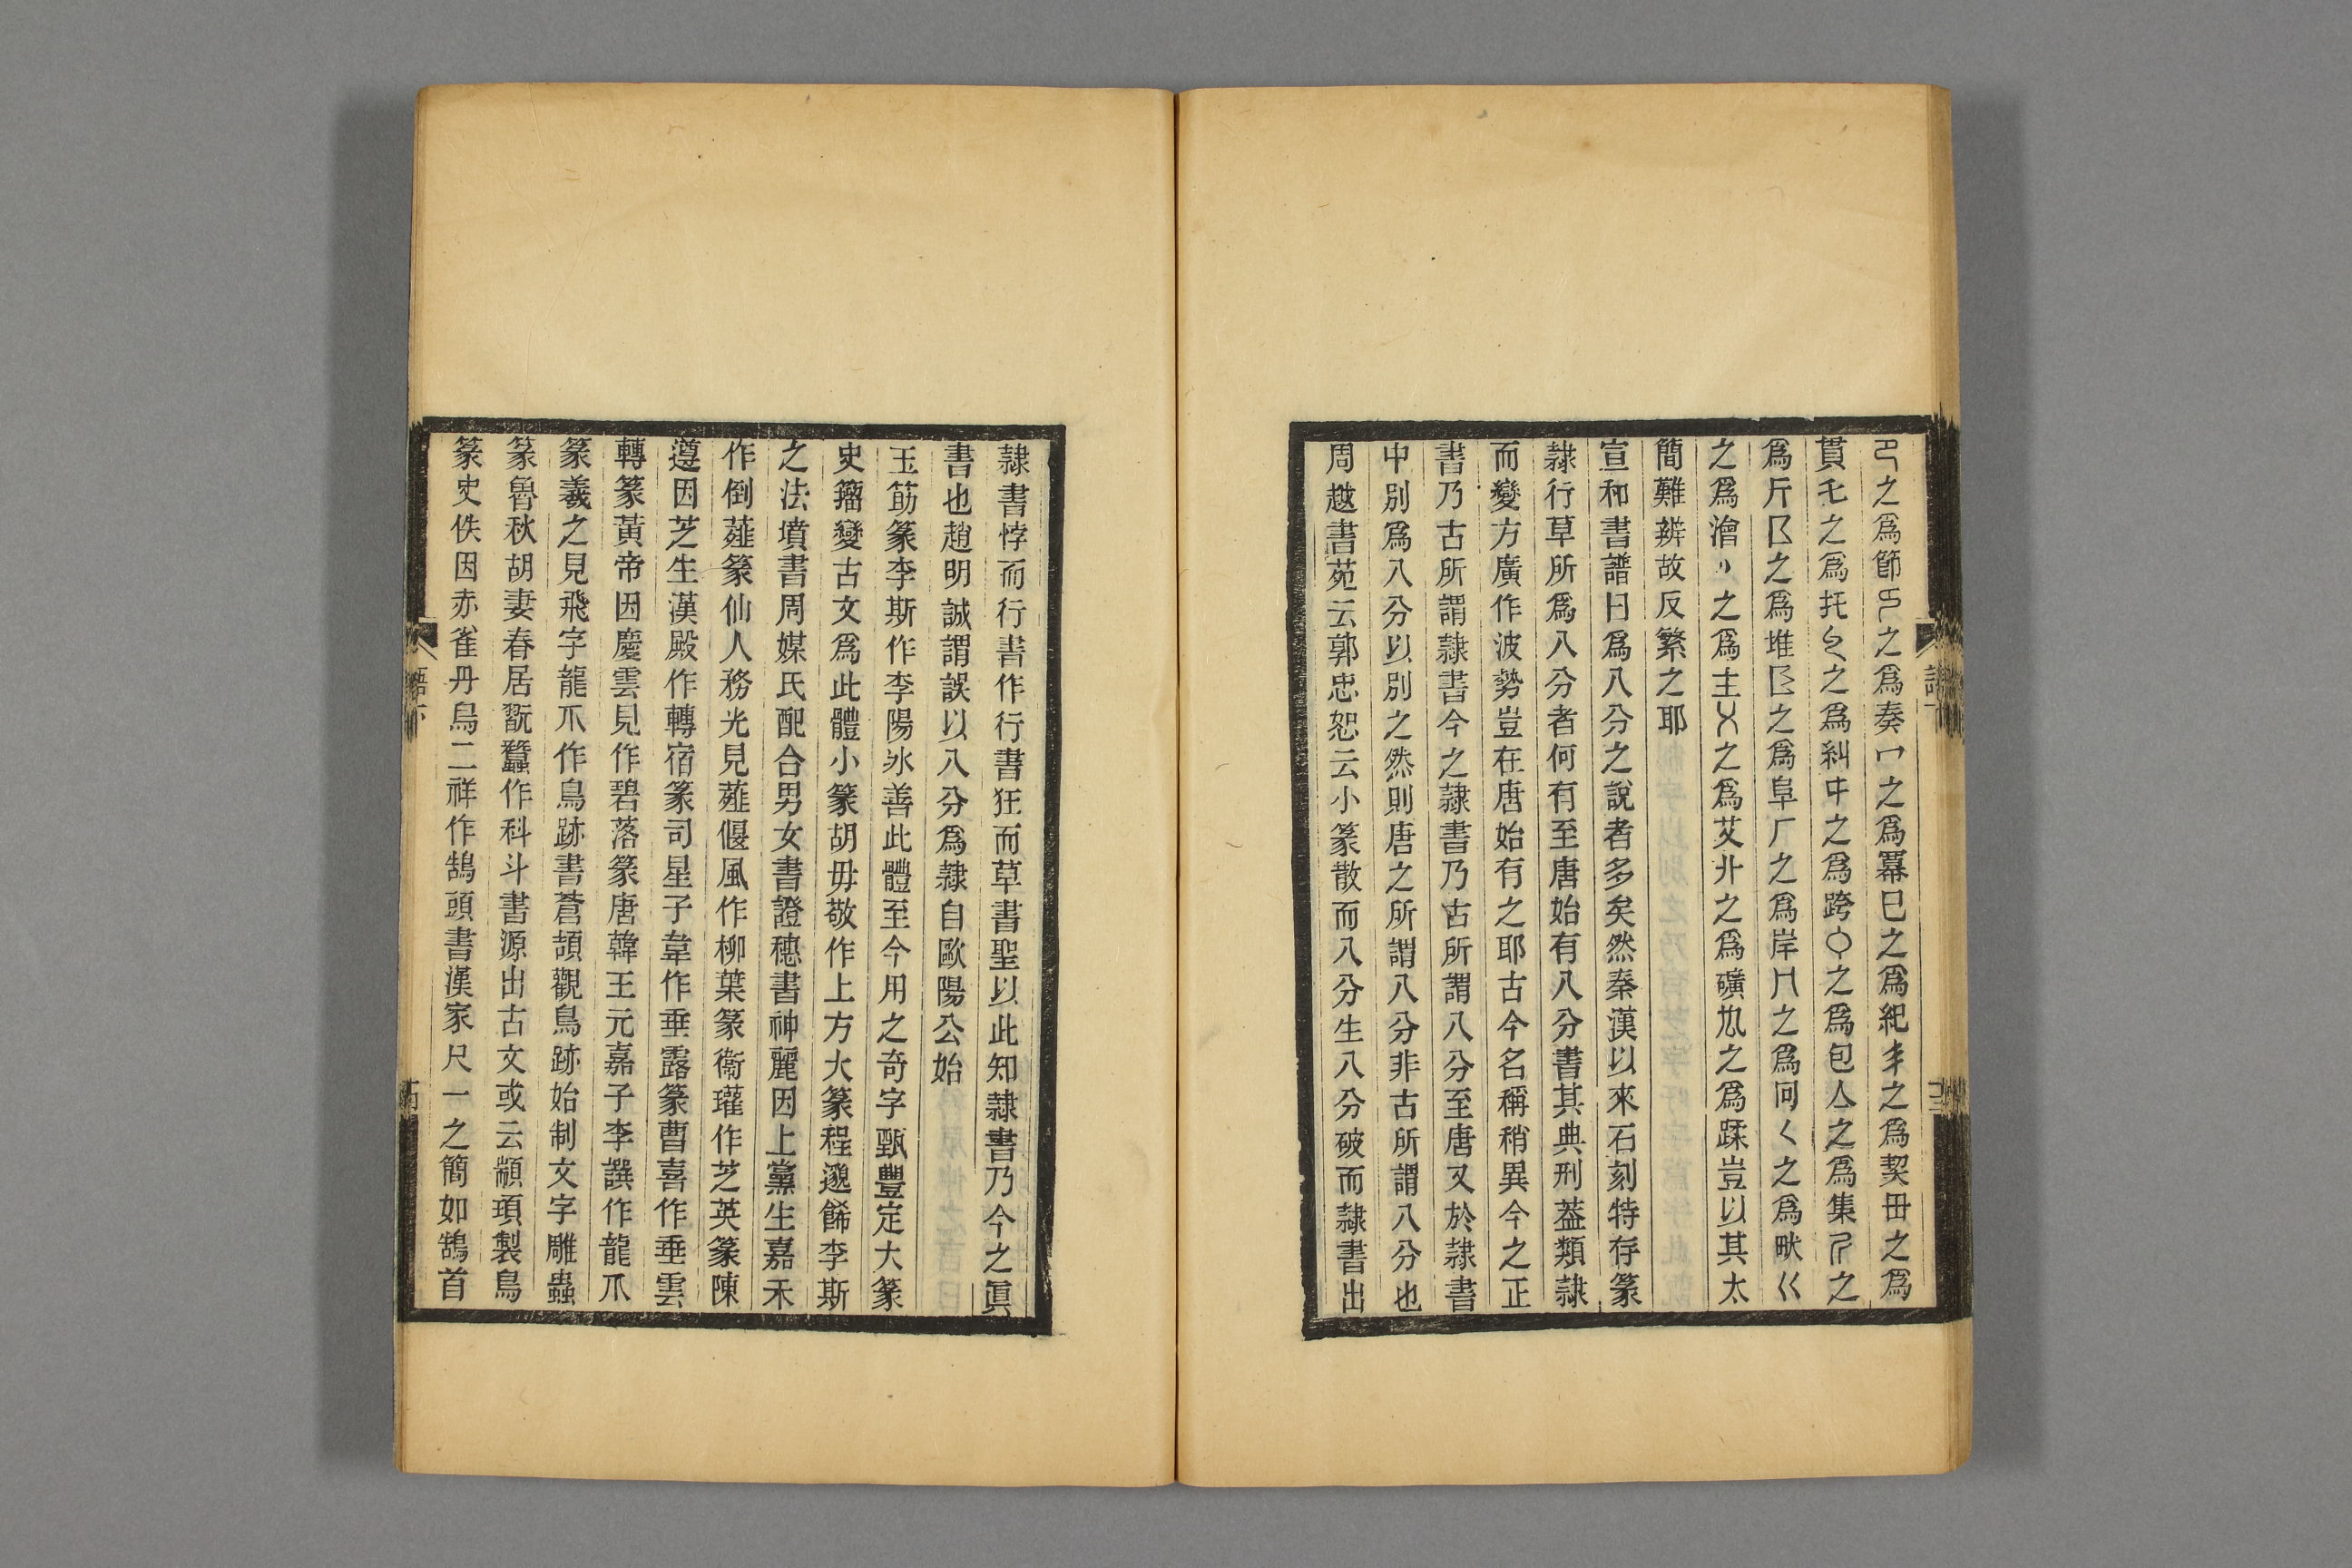 㔾之爲節𠬝之爲奏冖之爲冪巳之爲紀丯之爲契毌之爲
貫乇之爲托之爲糾㐄之爲跨之爲包亼之爲集之
爲斤𠂤之爲堆𨸏之爲阜厂之爲岸冂之爲冋𡿨之爲畎巜
之爲澮丶之爲主㐅之爲艾丱之爲礦㐳之爲蹂豈以其太
簡難辨故反繁之耶
宣和書譜曰爲八分之說者多矣然秦漢以來石刻特存篆
隷行草所爲八分者何有至唐始有八分書其典刑葢類隷
而變方廣作波勢豈在唐始有之耶古今名稱稍異今之正
書乃古所謂隷書今之隷書乃古所謂八分至唐又於隷書
中別爲八分以別之然則唐之所謂八分非古所謂八分也
周越書苑云郭忠恕云小篆散而八分生八分破而隷書出
隷書悖而行書作行書狂而草書聖以此知隷書乃今之眞
書也趙明誠謂誤以八分爲隷自歐陽公始
玉筯篆李斯作李陽氷善此體至今用之奇字甄豐定大篆
史籒變古文爲此體小篆胡毋敬作上方大篆程邈飾李斯
之法墳書周媒氏配合男女書證穗書神麗因上黨生嘉禾
作倒薤篆仙人務光見薤偃風作柳葉篆衞瓘作芝英篆陳
遵因芝生漢殿作轉宿篆司星子韋作垂露篆曹喜作垂雲
轉篆黃帝因慶雲見作碧落篆唐韓王元嘉子李譔作龍爪
篆羲之見飛字龍爪作鳥跡書蒼頡觀鳥跡始制文字雕蟲
篆魯秋胡妻春居翫蠶作科斗書源出古文或云顓頊製鳥
篆史佚因赤雀丹鳥二祥作鵠頭書漢家尺一之簡如鵠首